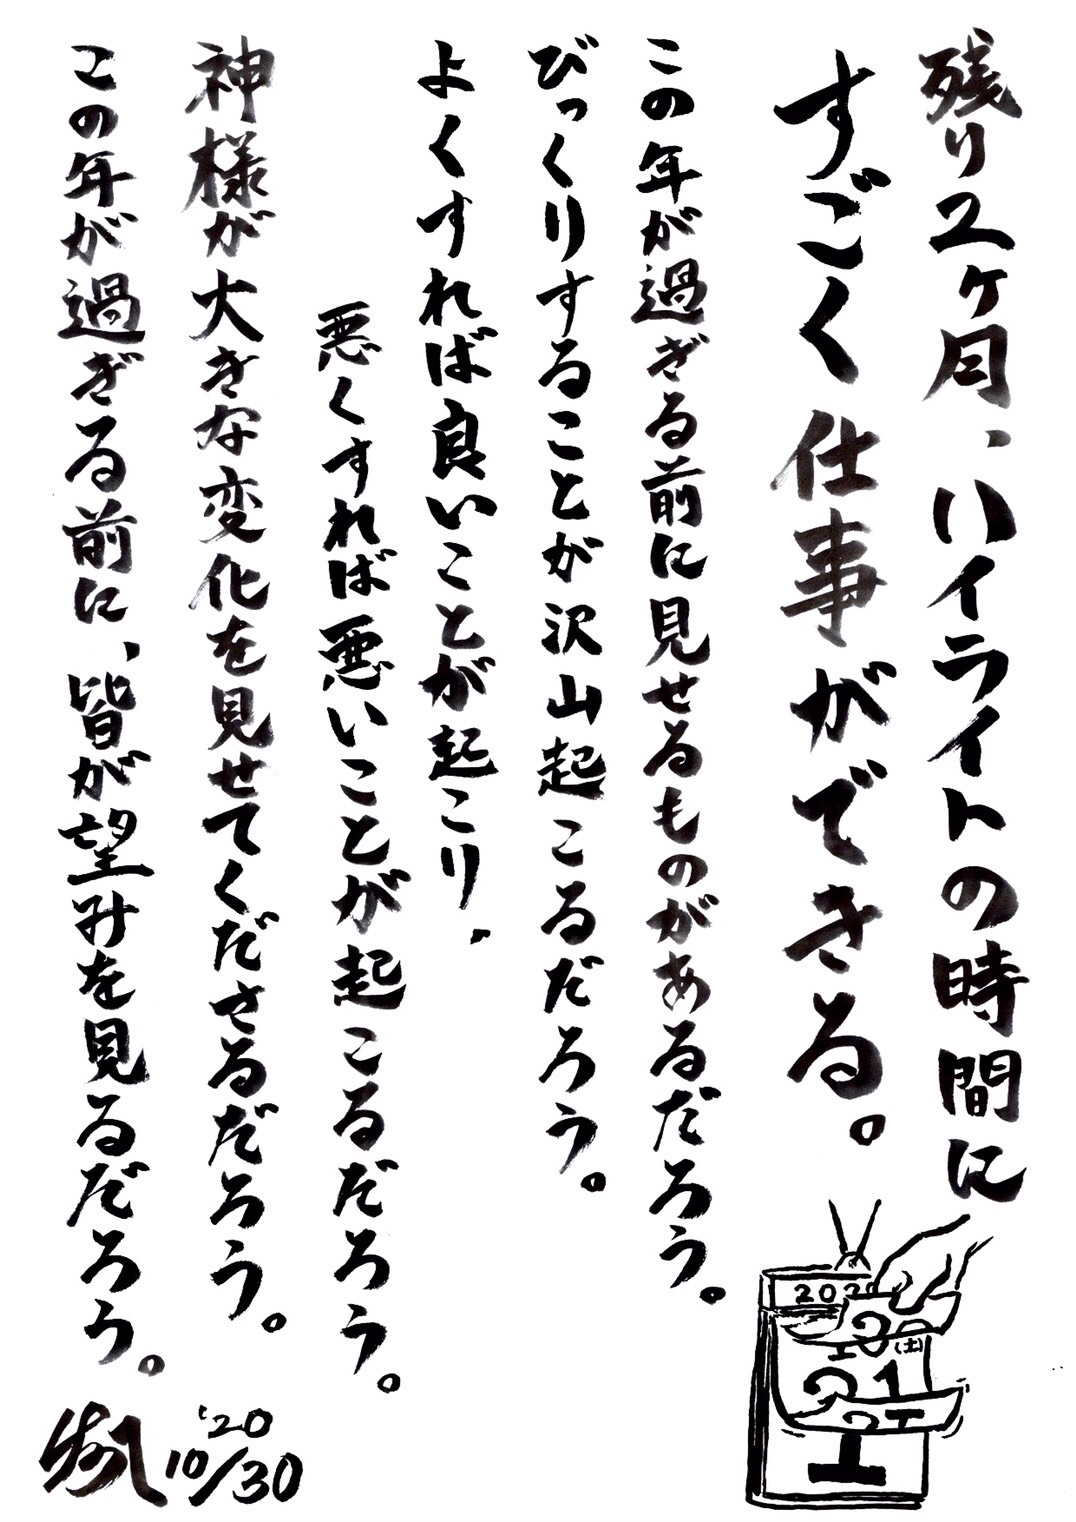 残り2ヶ月、ハイライトの時間に
すごく仕事ができる。
この年が過ぎる前に見せるものがあるだろう。
びっくりすることが沢山起こるだろう。
よくすれば良いことが起こり、
悪くすれば悪いことが起こるだろう。
神様が大きな変化を見せてくださるだろう。
この年が過ぎる前に、皆が望みを見るだろう。
'20
10/30
2020
(土)
31
1